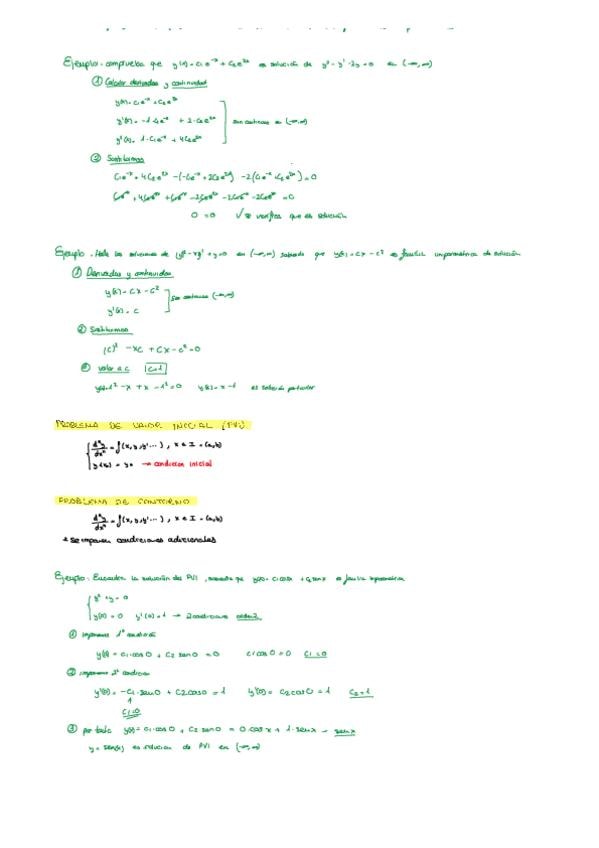 Ejemplo: comprueba que y(x) = c₁e⁻ˣ + c₂e²ˣ es solución de y'' - y' - 2y = 0 en (-∞,∞)
① Calcular derivadas y continuidad
y(x) = c₁e⁻ˣ + c₂e²ˣ
y'(x) = -1·c₁e⁻ˣ + 2·c₂e²ˣ son continuas en (-∞,∞)
y''(x) = 1·c₁e⁻ˣ + 4c₂e²ˣ
② Sustituimos
c₁e⁻ˣ + 4c₂e²ˣ - (-c₁e⁻ˣ + 2c₂e²ˣ) - 2(c₁e⁻ˣ + c₂e²ˣ) = 0
c₁e⁻ˣ + 4c₂e²ˣ + c₁e⁻ˣ - 2c₂e²ˣ - 2c₁e⁻ˣ - 2c₂e²ˣ = 0
0 = 0 √ se verifica que es solución
Ejemplo. Halle las soluciones de (y')² - xy' + y = 0 en (-∞,∞) sabiendo que y(x) = cx - c² es familia uniparamétrica de solución
① Derivadas y continuidad
y(x) = cx - c²
y'(x) = c son continuas (-∞,∞)
② Sustituimos
(c)² - xc + cx - c² = 0
valor a c c=1
1² - x + x - 1² = 0 y(x) = x - 1 es solución particular
PROBLEMA DE VALOR INICIAL (PVI)
dⁿy/dxⁿ = f(x, y, y'...), x ∈ I = (a,b)
y(x₀) = y₀ → condición inicial
PROBLEMA DE CONTORNO
dⁿy/dxⁿ = f(x, y, y'...), x ∈ I = (a,b)
+ se imponen condiciones adicionales
Ejemplo: Encuentra la solución del PVI, sabiendo que y(x) = c₁cosx + c₂senx es familia biparamétrica
y'' + y = 0
y(0) = 0 y'(0) = 1 → 2 condiciones orden 2
① imponemos 1ª condición
y(0) = c₁·cos0 + c₂ sen0 = 0 c₁cos0 = 0 c₁ = 0
② imponemos 2ª condición
y'(0) = -c₁·sen0 + c₂cos0 = 1 y'(0) = c₂cos0 = 1 c₂ = 1
c₁ = 0
③ por tanto y(x) = c₁·cos0 + c₂ sen0 = 0·cosx + 1·senx = senx
y = sen(x) es solución de PVI en (-∞,∞)